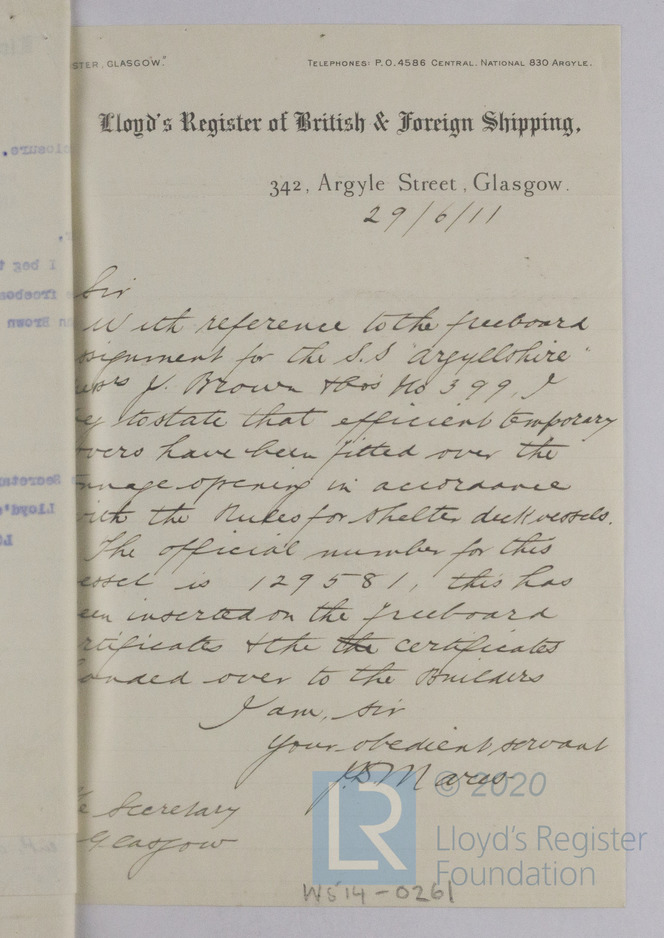 STER, GLASGOW."
TELEPHONES: P.O. 4586 CENTRAL. NATIONAL 830 ARGYLE.
Lloyd's Register of British & Foreign Shipping,
342, Argyle Street, Glasgow.
29/6/11
Sir
With reference to the freeboard
ssignment for the S.S "Argyllshire"
J. Brown & Cos No 399, I
eg to state that efficient temporary
overs have been fitted over the
nnage opening in accordance
ith the Rules for shelter deck vessels.
The official number for this
essel is 129581, this has
een inserted on the freeboard
rtificates & the the certificates
anded over to the Builders
I am, Sir
Your obedient servant
e Secretary
Glasgow
closure.
I beg t
freeboa
n Brown
Secretar
Lloyd's
© 2020
LR
Lloyd's Register
Foundation
W514-0261